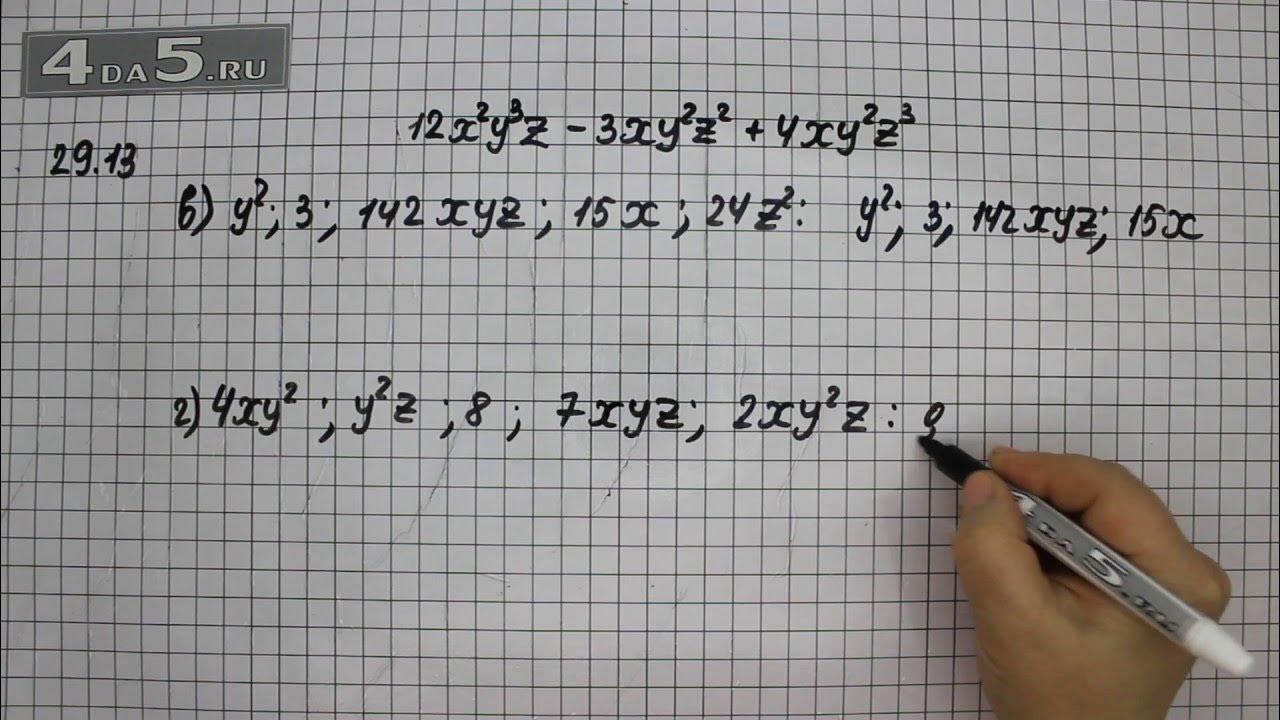 4DA5.RU
12x²y³z - 3xy²z² + 4xy²z³
29.13
в) y²; 3; 142xyz; 15x; 24z²: y²; 3; 142xyz; 15x
г) 4xy²; y²z; 8; 7xyz; 2xy²z:
4DA5.RU